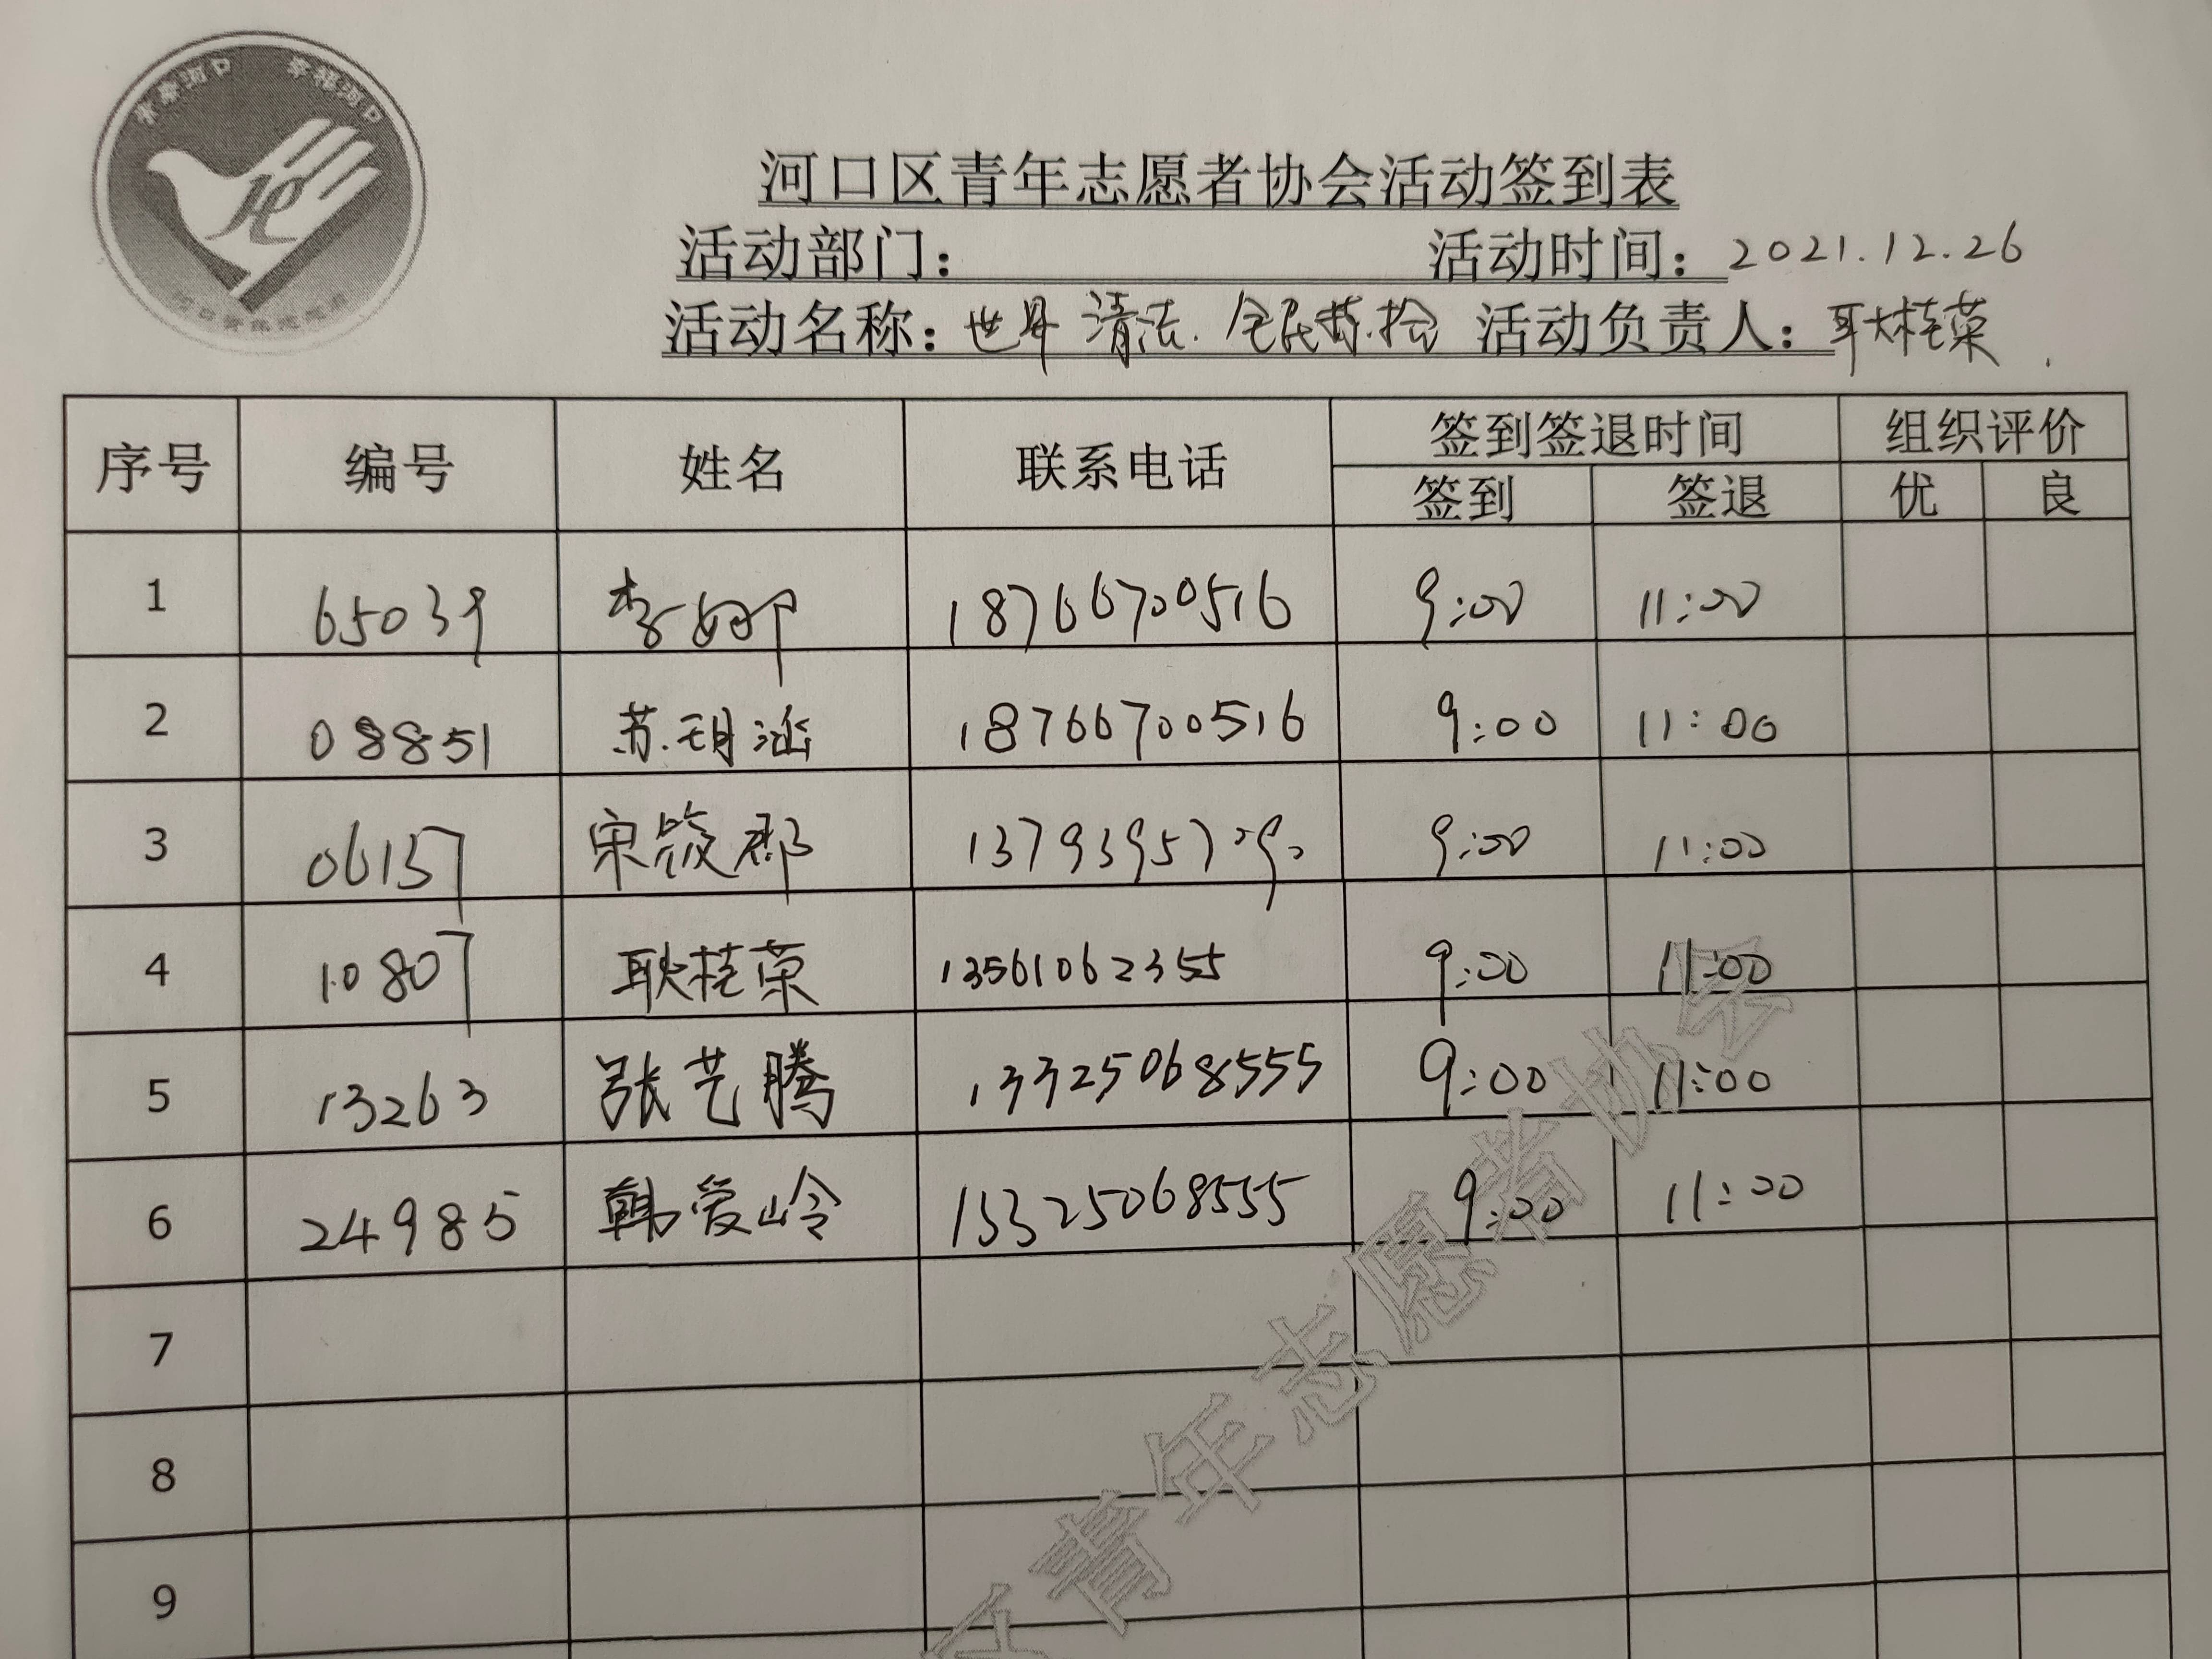 幸福河口
河口区青年志愿者协会活动签到表
活动部门： 活动时间：2021.12.26
活动名称：世界清洁.全民捡拾 活动负责人：耿桂荣
序号 编号 姓名 联系电话 签到签退时间 组织评价
签到 签退 优 良
1 65039 李娜 18766700516 9:00 11:00
2 08851 苏玥涵 18766700516 9:00 11:00
3 06157 宋筱郡 13793957090 9:00 11:00
4 10807 耿桂荣 13561062355 9:00 11:00
5 13263 张艺腾 13325068555 9:00 11:00
6 24985 韩爱岭 13325068555 9:00 11:00
7
8
9
区青年志愿者协会